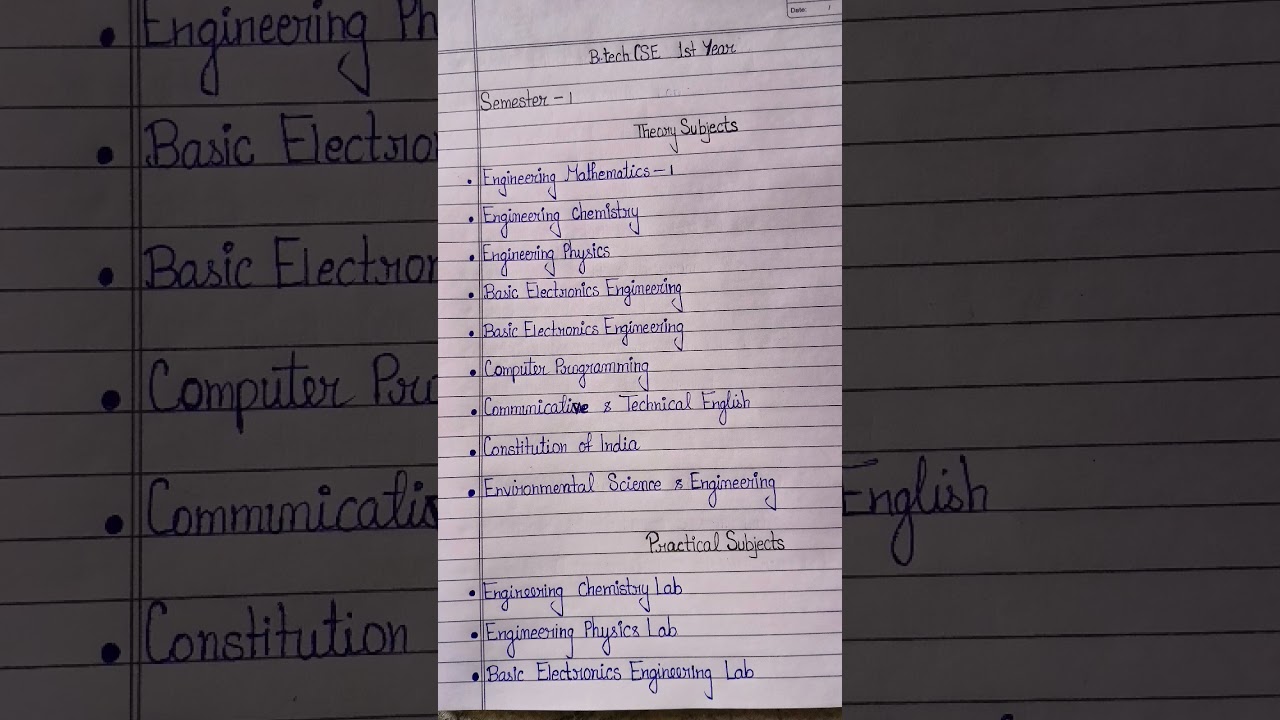 Date:
B.tech CSE 1st Year
Semester - 1
Theory Subjects
• Engineering Mathematics - 1
• Engineering Chemistry
• Engineering Physics
• Basic Electronics Engineering
• Basic Electronics Engineering
• Computer Programming
• Communicative & Technical English
• Constitution of India
• Environmental Science & Engineering
Practical Subjects
• Engineering Chemistry Lab
• Engineering Physics Lab
• Basic Electronics Engineering Lab
• Engineering Ph
• Basic Electro
• Basic Electron
• Computer Pro
• Communicati
English
• Constitution